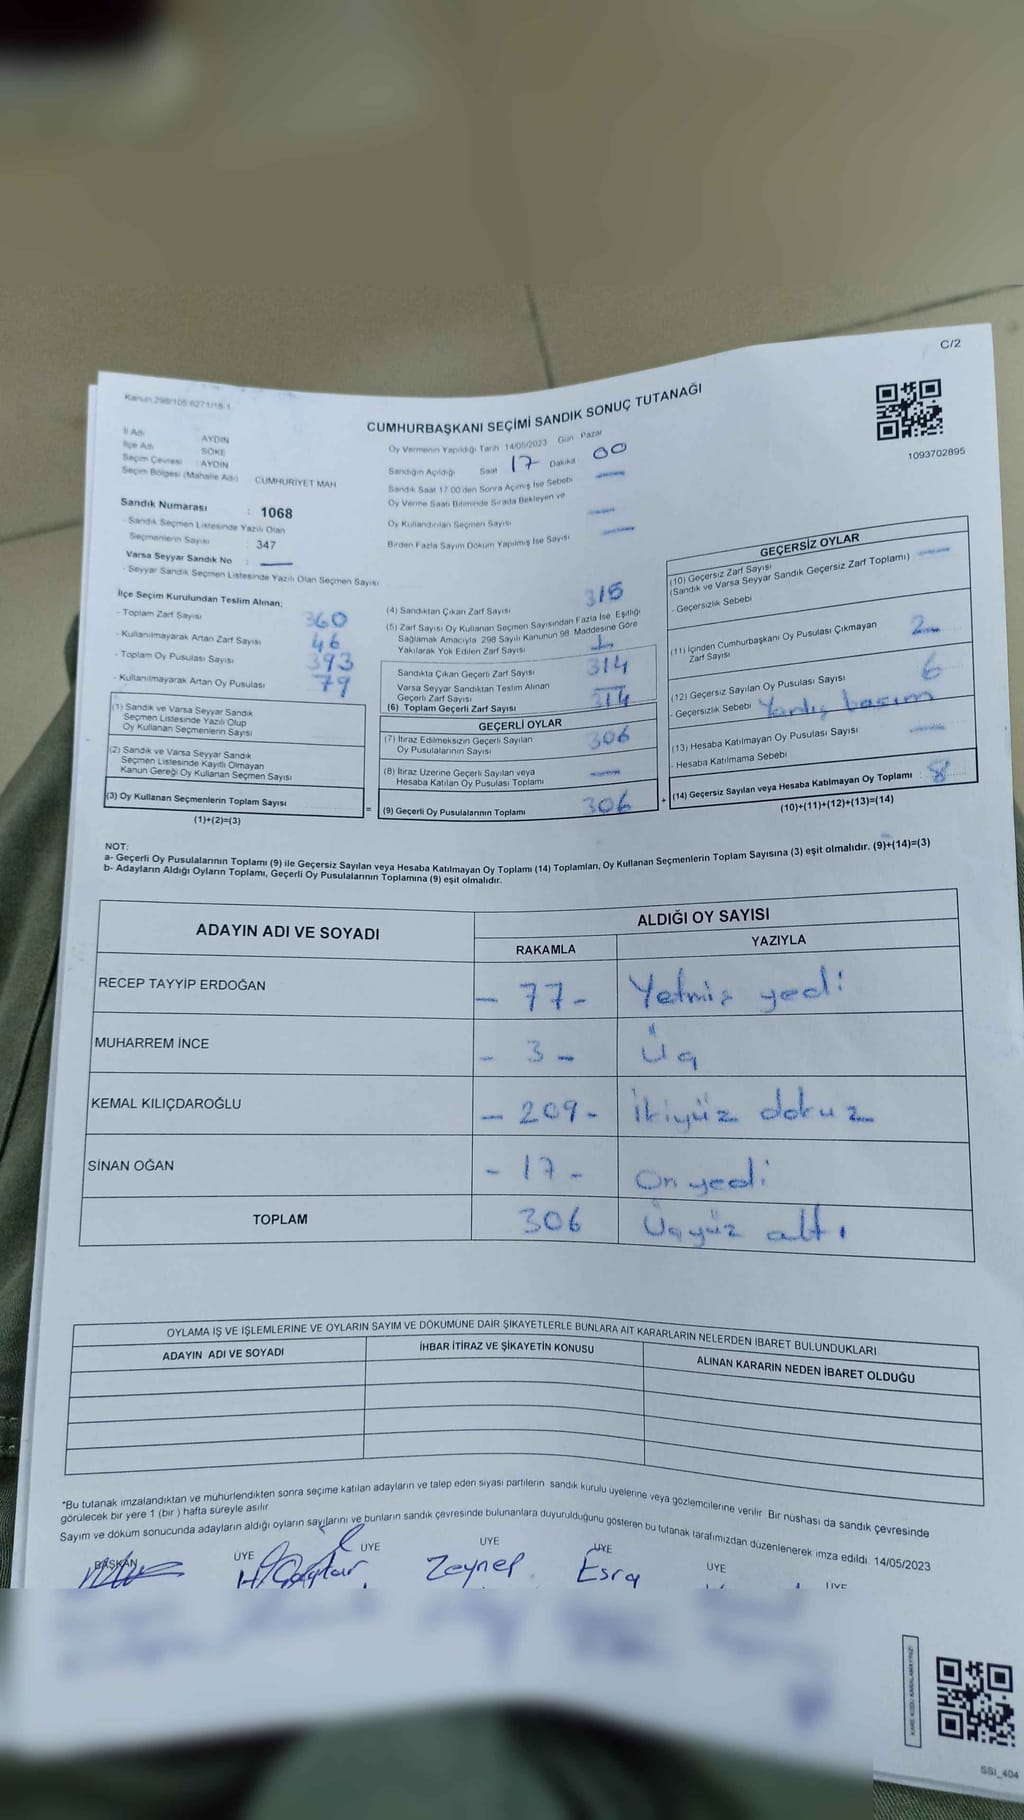 C/2
Kanun 298/105 6271/16-1
CUMHURBAŞKANI SEÇİMİ SANDIK SONUÇ TUTANAĞI
1093702895
İl Adı AYDIN
İlçe Adı SÖKE
Seçim Çevresi : AYDIN
Seçim Bölgesi (Mahalle Adı) : CUMHURİYET MAH
Oy Vermenin Yapıldığı Tarih 14/05/2023 Gün Pazar
Sandığın Açıldığı Saat 17 Dakika 00
Sandık Saat 17:00'den Sonra Açılmış İse Sebebi
Oy Verme Saati Bitiminde Sırada Bekleyen ve
Oy Kullandırılan Seçmen Sayısı
Birden Fazla Sayım Döküm Yapılmış İse Sayısı
Sandık Numarası : 1068
- Sandık Seçmen Listesinde Yazılı Olan
Seçmenlerin Sayısı : 347
Varsa Seyyar Sandık No :
- Seyyar Sandık Seçmen Listesinde Yazılı Olan Seçmen Sayısı
İlçe Seçim Kurulundan Teslim Alınan;
- Toplam Zarf Sayısı 360
- Kullanılmayarak Artan Zarf Sayısı 46
- Toplam Oy Pusulası Sayısı 393
- Kullanılmayarak Artan Oy Pusulası 79
(1) Sandık ve Varsa Seyyar Sandık
Seçmen Listesinde Yazılı Olup
Oy Kullanan Seçmenlerin Sayısı
(2) Sandık ve Varsa Seyyar Sandık
Seçmen Listesinde Kayıtlı Olmayan
Kanun Gereği Oy Kullanan Seçmen Sayısı
(3) Oy Kullanan Seçmenlerin Toplam Sayısı
(1)+(2)=(3)
(4) Sandıktan Çıkan Zarf Sayısı 315
(5) Zarf Sayısı Oy Kullanan Seçmen Sayısından Fazla İse, Eşitliği
Sağlamak Amacıyla 298 Sayılı Kanunun 98. Maddesine Göre
Yakılarak Yok Edilen Zarf Sayısı 1
Sandıkta Çıkan Geçerli Zarf Sayısı 314
Varsa Seyyar Sandıktan Teslim Alınan
Geçerli Zarf Sayısı
(6) Toplam Geçerli Zarf Sayısı 314
GEÇERLİ OYLAR
(7) İtiraz Edilmeksizin Geçerli Sayılan
Oy Pusulalarının Sayısı 306
(8) İtiraz Üzerine Geçerli Sayılan veya
Hesaba Katılan Oy Pusulası Toplamı
= (9) Geçerli Oy Pusulalarının Toplamı 306 +
GEÇERSİZ OYLAR
(10) Geçersiz Zarf Sayısı
(Sandık ve Varsa Seyyar Sandık Geçersiz Zarf Toplamı)
- Geçersizlik Sebebi
(11) İçinden Cumhurbaşkanı Oy Pusulası Çıkmayan
Zarf Sayısı 2
(12) Geçersiz Sayılan Oy Pusulası Sayısı 6
- Geçersizlik Sebebi Yanlış basım
(13) Hesaba Katılmayan Oy Pusulası Sayısı
- Hesaba Katılmama Sebebi
(14) Geçersiz Sayılan veya Hesaba Katılmayan Oy Toplamı : 8
(10)+(11)+(12)+(13)=(14)
NOT:
a- Geçerli Oy Pusulalarının Toplamı (9) ile Geçersiz Sayılan veya Hesaba Katılmayan Oy Toplamı (14) Toplamları, Oy Kullanan Seçmenlerin Toplam Sayısına (3) eşit olmalıdır. (9)+(14)=(3)
b- Adayların Aldığı Oyların Toplamı, Geçerli Oy Pusulalarının Toplamına (9) eşit olmalıdır.
ADAYIN ADI VE SOYADI
ALDIĞI OY SAYISI
RAKAMLA YAZIYLA
RECEP TAYYİP ERDOĞAN - 77 - Yetmiş yedi
MUHARREM İNCE - 3 - Üç
KEMAL KILIÇDAROĞLU - 209 - İkiyüz dokuz
SİNAN OĞAN - 17 - On yedi
TOPLAM 306 Üçyüz altı
OYLAMA İŞ VE İŞLEMLERİNE VE OYLARIN SAYIM VE DÖKÜMÜNE DAİR ŞİKAYETLERLE BUNLARA AİT KARARLARIN NELERDEN İBARET BULUNDUKLARI
ADAYIN ADI VE SOYADI İHBAR İTİRAZ VE ŞİKAYETİN KONUSU ALINAN KARARIN NEDEN İBARET OLDUĞU
*Bu tutanak imzalandıktan ve mühürlendikten sonra seçime katılan adayların ve talep eden siyasi partilerin sandık kurulu üyelerine veya gözlemcilerine verilir. Bir nüshası da sandık çevresinde
görülecek bir yere 1 (bir) hafta süreyle asılır
Sayım ve döküm sonucunda adayların aldığı oyların sayılarını ve bunların sandık çevresinde bulunanlara duyurulduğunu gösteren bu tutanak tarafımızdan düzenlenerek imza edildi. 14/05/2023
BAŞKAN ÜYE ÜYE ÜYE ÜYE ÜYE ÜYE
Zeynep Esra
SSI_404